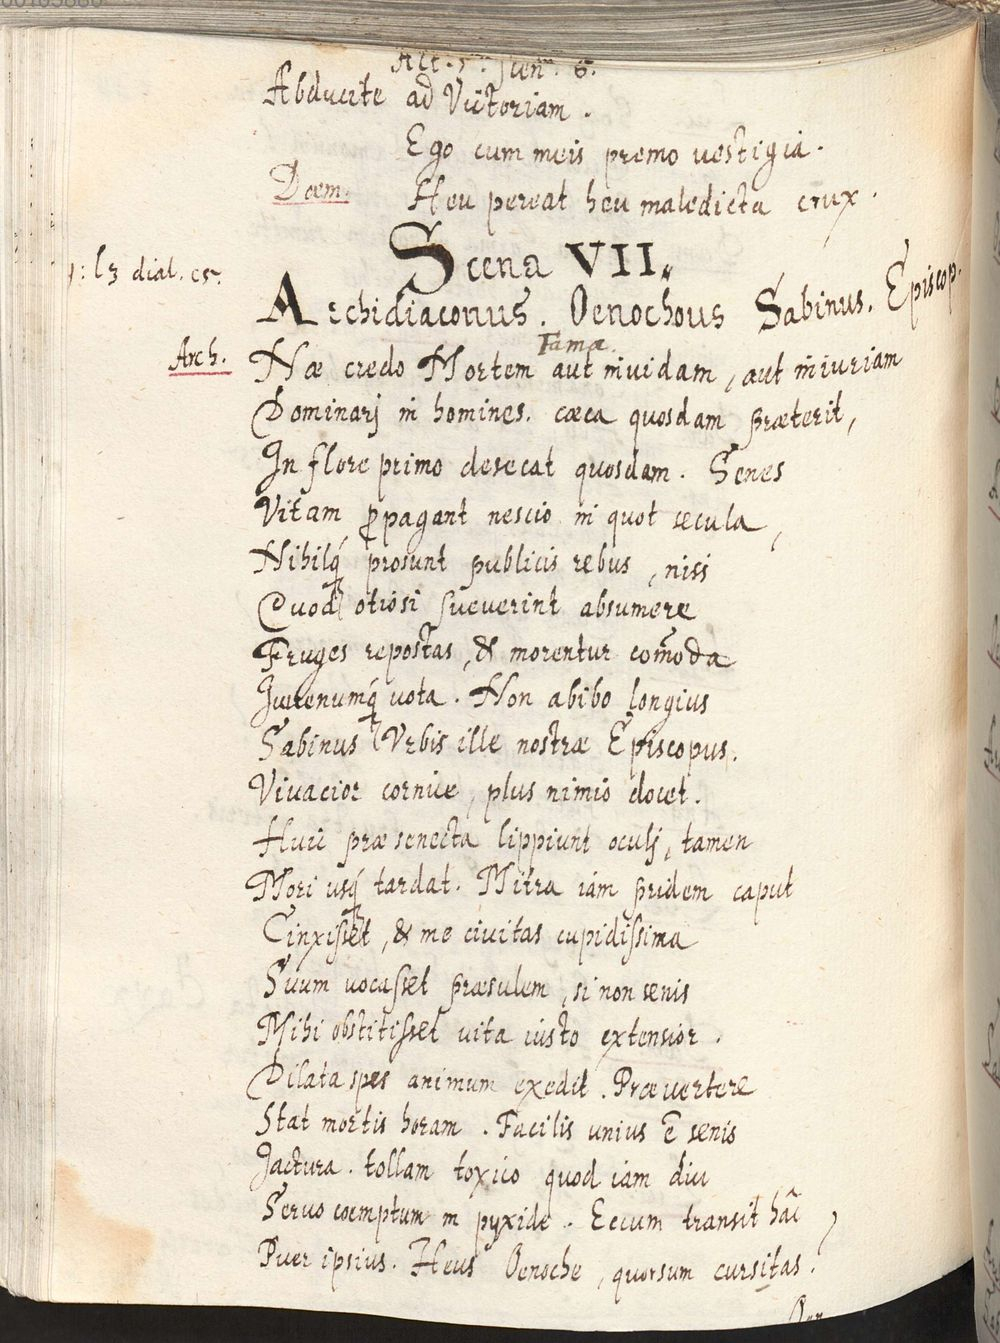 Act. 5. Scen. 6.
Abducite ad Victoriam.
Ego cum meis premo vestigia.
Dæm. Heu pereat heu maledicta crux.
Scena VII.
l3 dial. c5.
Archidiaconus. Oenochous Sabinus. Episcop.
Famæ
Arch. Næ credo Mortem aut invidam, aut iniuriam
Dominarj in homines. cæca quosdam præterit,
In flore primo desecat quosdam. Senes
Vitam ꝓpagant nescio in quot secula,
Nihilq́ prosunt publicis rebus, nisi
Quod otiosi sueverint absumere
Fruges repostas, & morentur com̃oda
Iuvenumq́ vota. Non abibo longius
Sabinus Vrbis ille nostræ Episcopus.
Vivacior cornice, plus nimio docet.
Huic præ senecta lippiunt oculj, tamen
Mori usq́ tardat. Mitra iam pridem caput
Cinxisset, & me civitas cupidissima
Suum vocasset præsulem, si non senis
Mihi obstitisset vita iusto extensior.
Dilata spes animum exedit. Prævertere
Stat mortis horam. Facilis unius ē senis
Jactura. tollam toxico quod iam diu
Servo coemptum in pyxide. Eccum transit hāc
Puer ipsius. Heus Oenoche, quorsum cursitas?